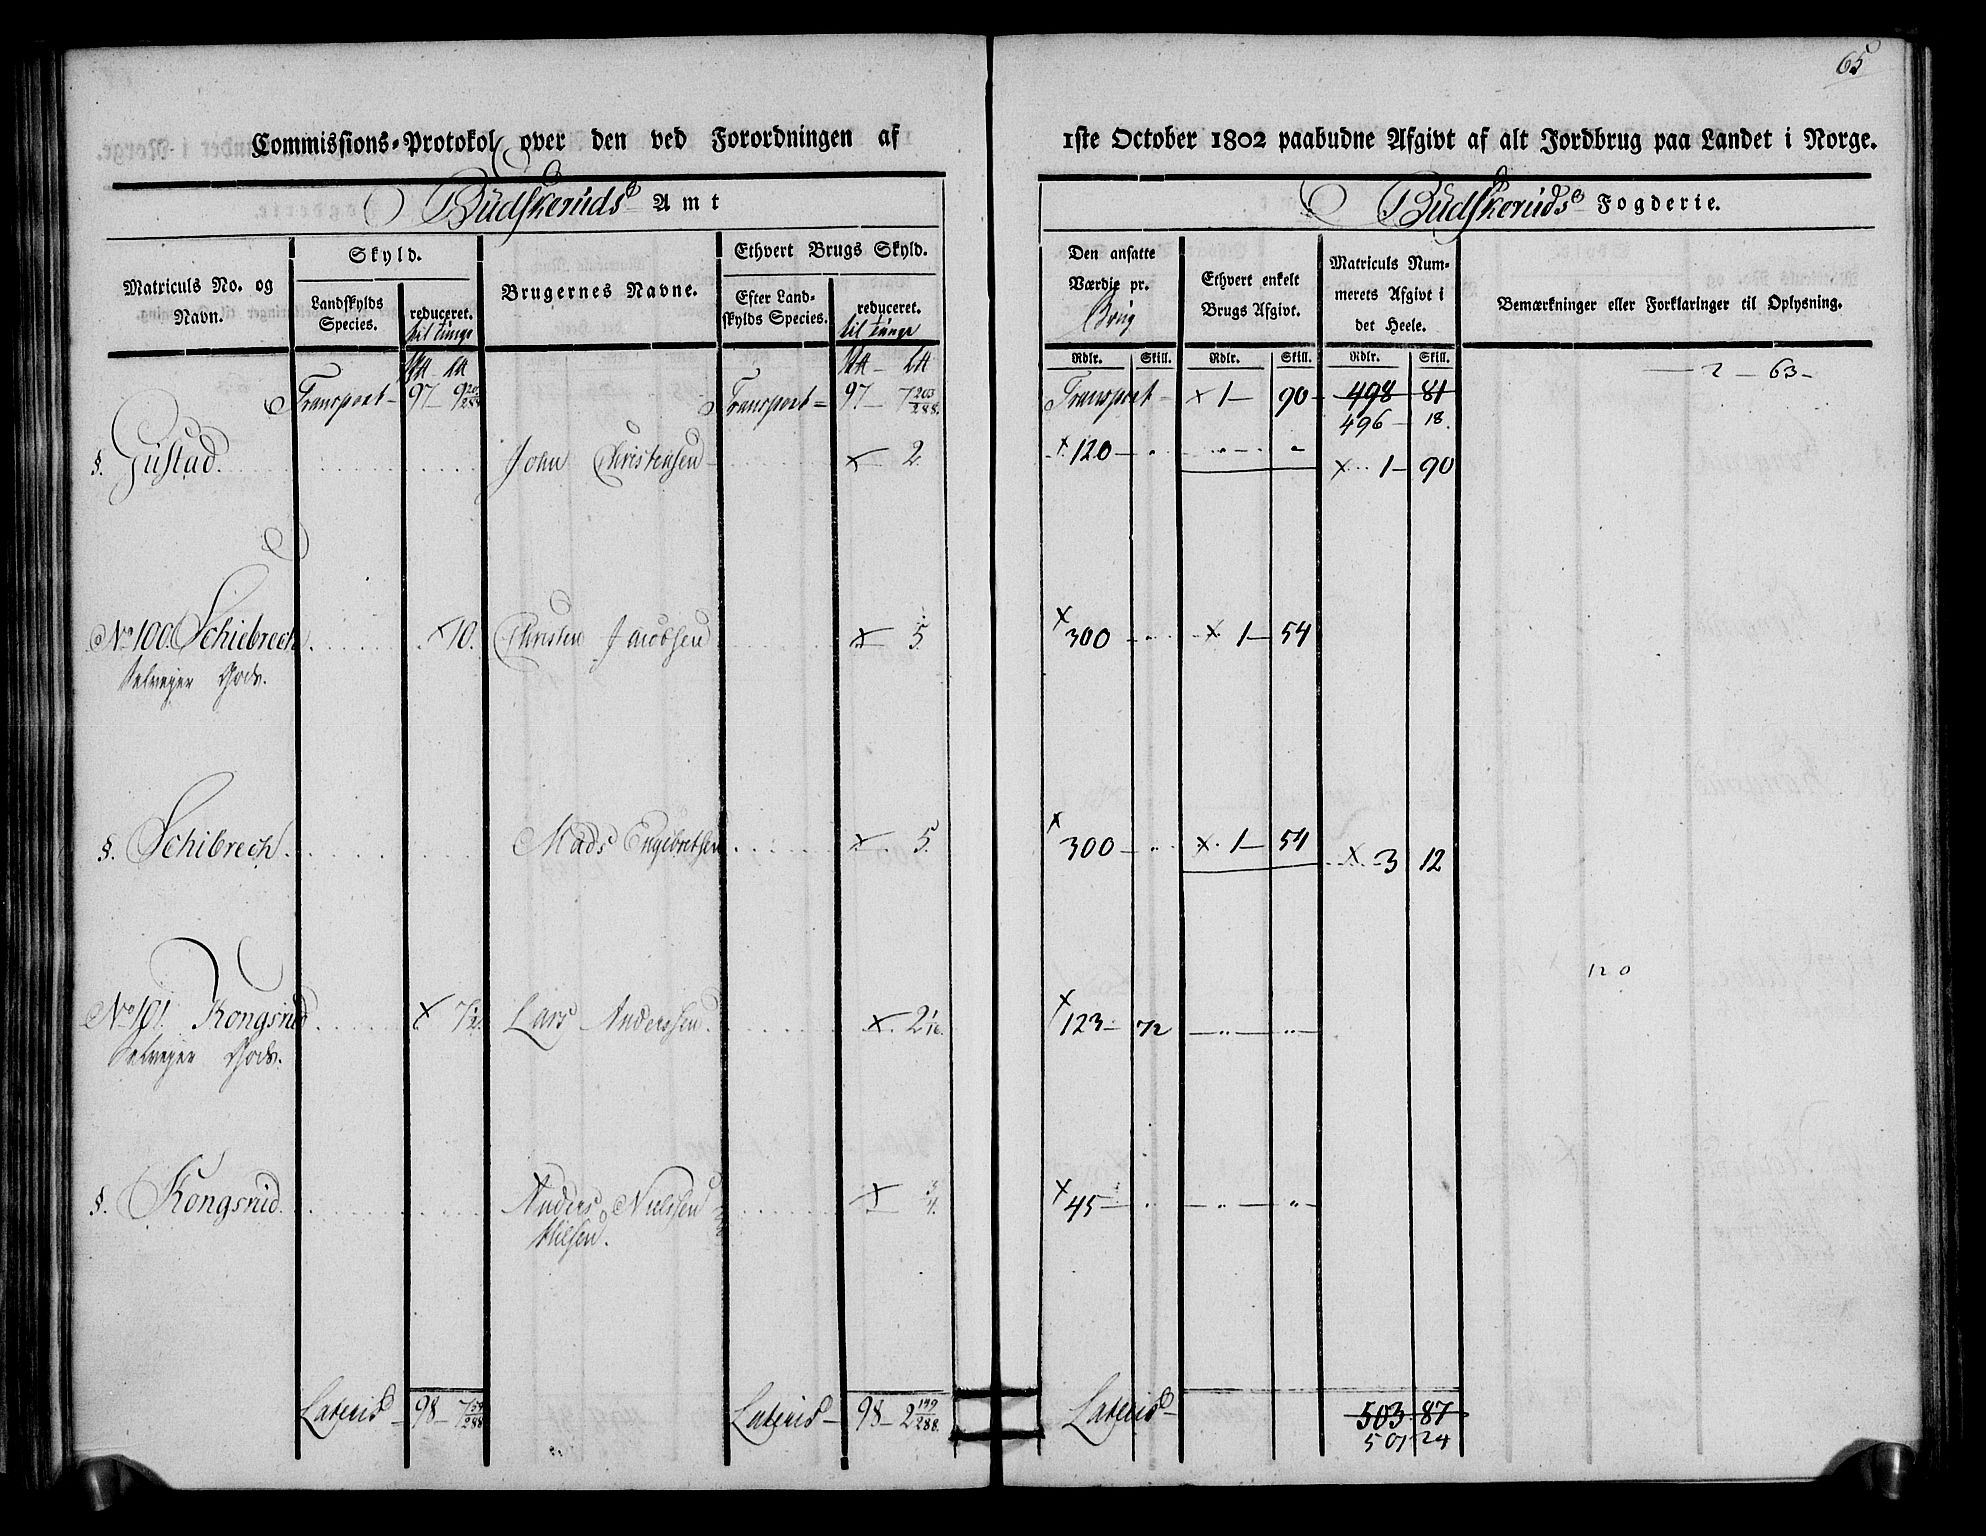 65
Commissions-Protokol over den ved Forordningen af 1ste October 1802 paabudne Afgivt af alt Jordbrug paa Landet i Norge.
Budskeruds Amt Budskeruds Fogderie.
Matriculs No. og Navn. Skyld. Brugernes Navne. Ethvert Brugs Skyld. Den ansatte Værdie pr. Brug Ethvert enkelt Brugs Afgivt. Matriculs Nummerets Afgivt i det Heele. Bemærkninger eller Forklaringer til Oplysning.
Landskylds Species. reduceret. til tunge Efter Landskylds Species. reduceret. til tunge
Rdlr. Skill. Rdlr. Skill. Rdlr. Skill.
Transport 97 9 Transport 97 7 203/288 Transport x 1 90 498 81 2 63
496 18
§. Gustad John Christensen x 2 x 120 x 1 90
No 100 Schiebrech x 10. Christen Jacobsen x 5 x 300 x 1 54
Selveyer Gods.
§. Schibrech Mads Engebretsen x 5 x 300 x 1 54 x 3 12
120
No 101 Kongsrud x 7 1/2 Lars Anderssen x 2 1/16 x 123 72
Selveyer Gods.
§. Kongsrud Anders Nielssen x 3/4 x 45
Lateris 98 7 59/288 Lateris 98 2 179/288 Lateris 503 87
501 24